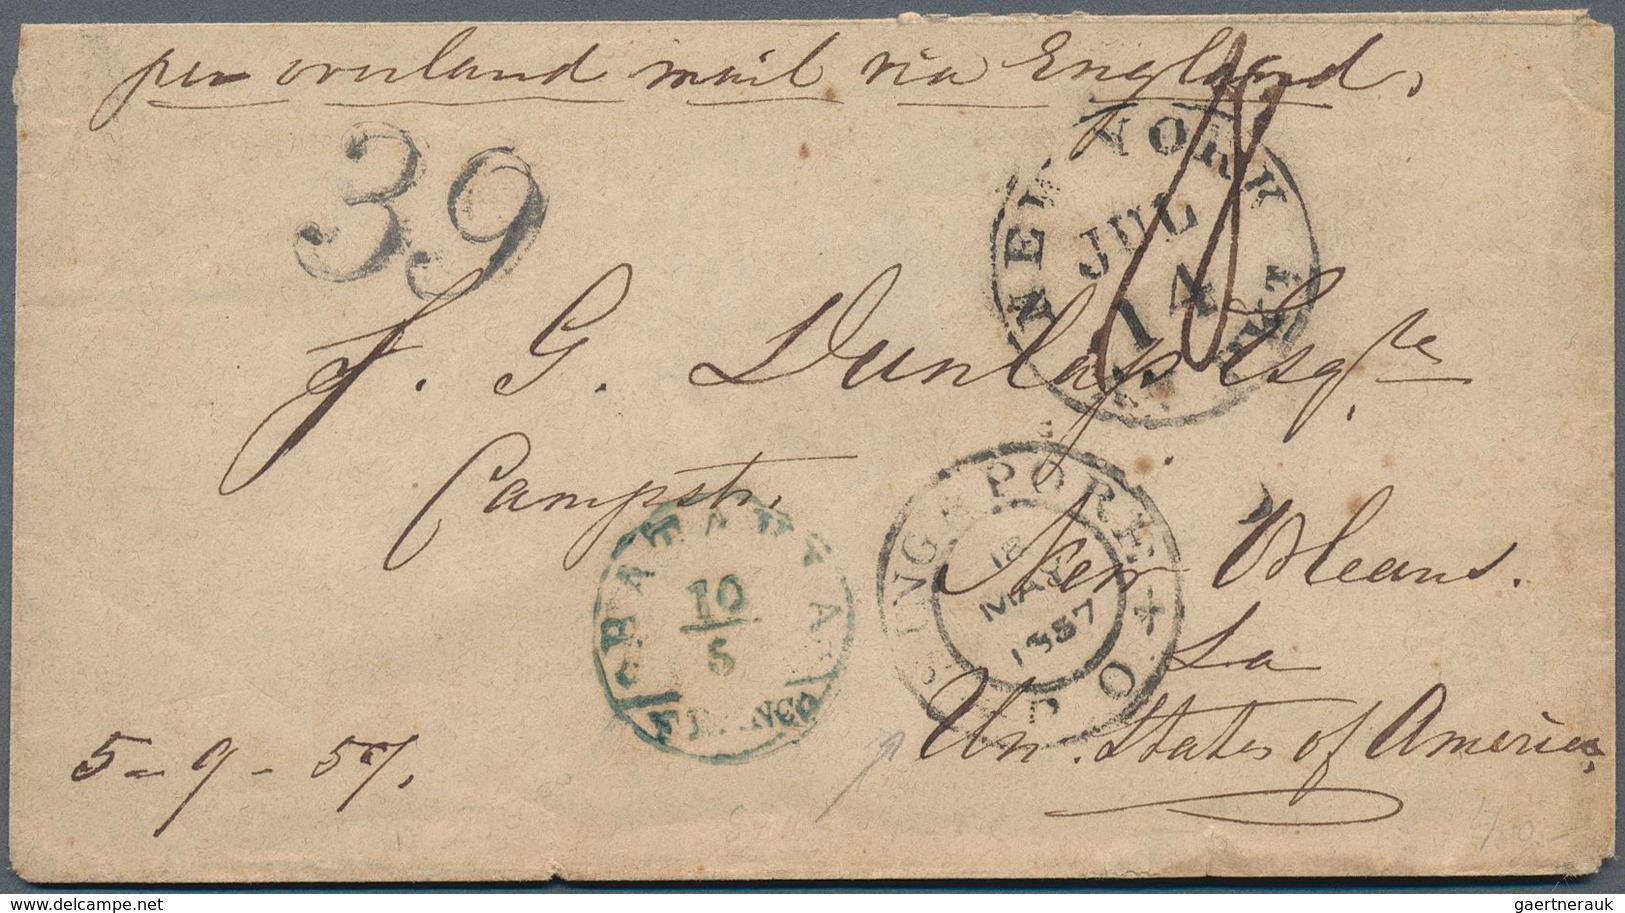 per overland mail via England.
39
NEW YORK
JUL
14
J. G. Dunlap Esqre
Campstr.
New Orleans.
La
Un. States of America,
BATAVIA
10/5
FRANCO
SINGAPORE P O
18
MAY
1857
5-9-57.
delcampe.net
gaertnerauk